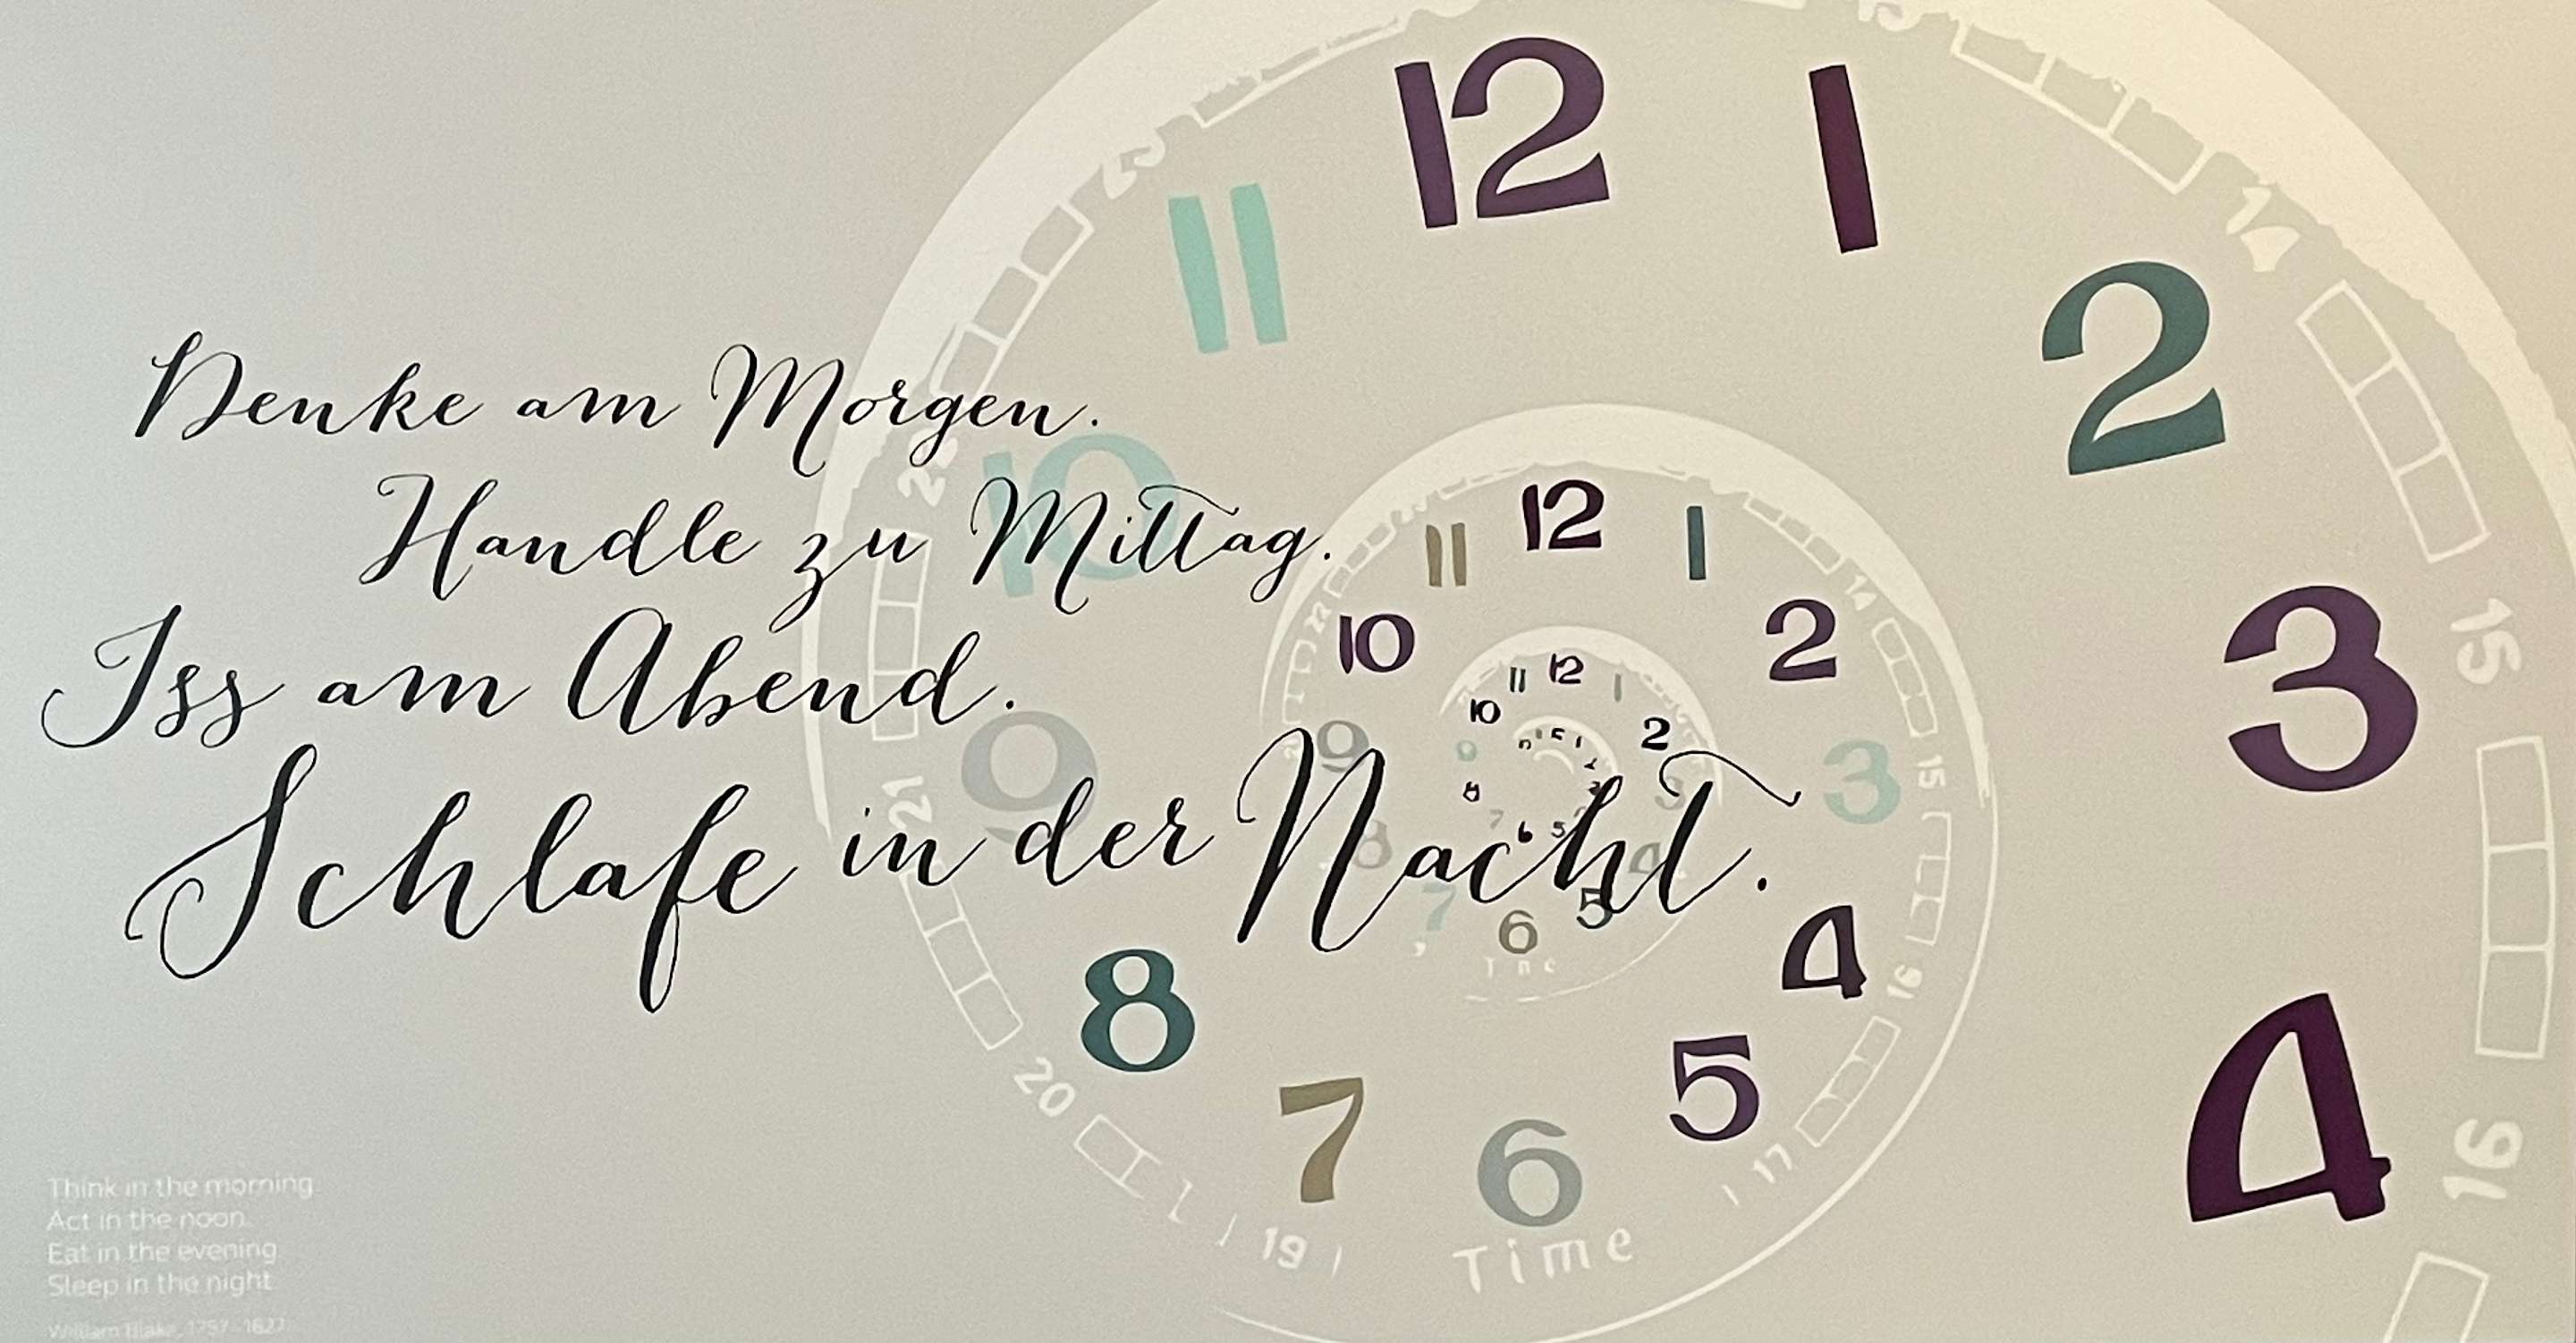 Denke am Morgen.
Handle zu Mittag.
Iss am Abend.
Schlafe in der Nacht.
12
1
2
3
4
11
10
9
8
7
6
5
4
3
2
1
12
11
10
9
8
7
6
5
4
3
2
1
12
11
10
9
8
7
6
5
14
15
16
23
21
20
19
Time
17
16
15
14
Think in the morning
Act in the noon.
Eat in the evening
Sleep in the night
William Blake, 1757-1827